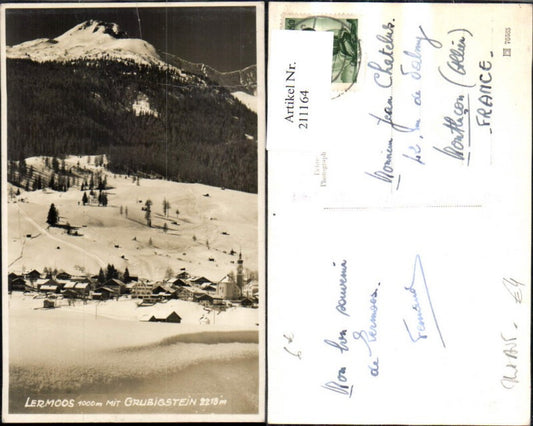 LERMOOS 1000m MIT GRUBIGSTEIN 2213m
Artikel Nr.
211164
Echte
Photograph
70565
Monsieur Jean Chatelus
42, rue de Valmy
Montluçon (Allier)
-FRANCE-
Mon bon souvenir
de Lermoos.
Fernand